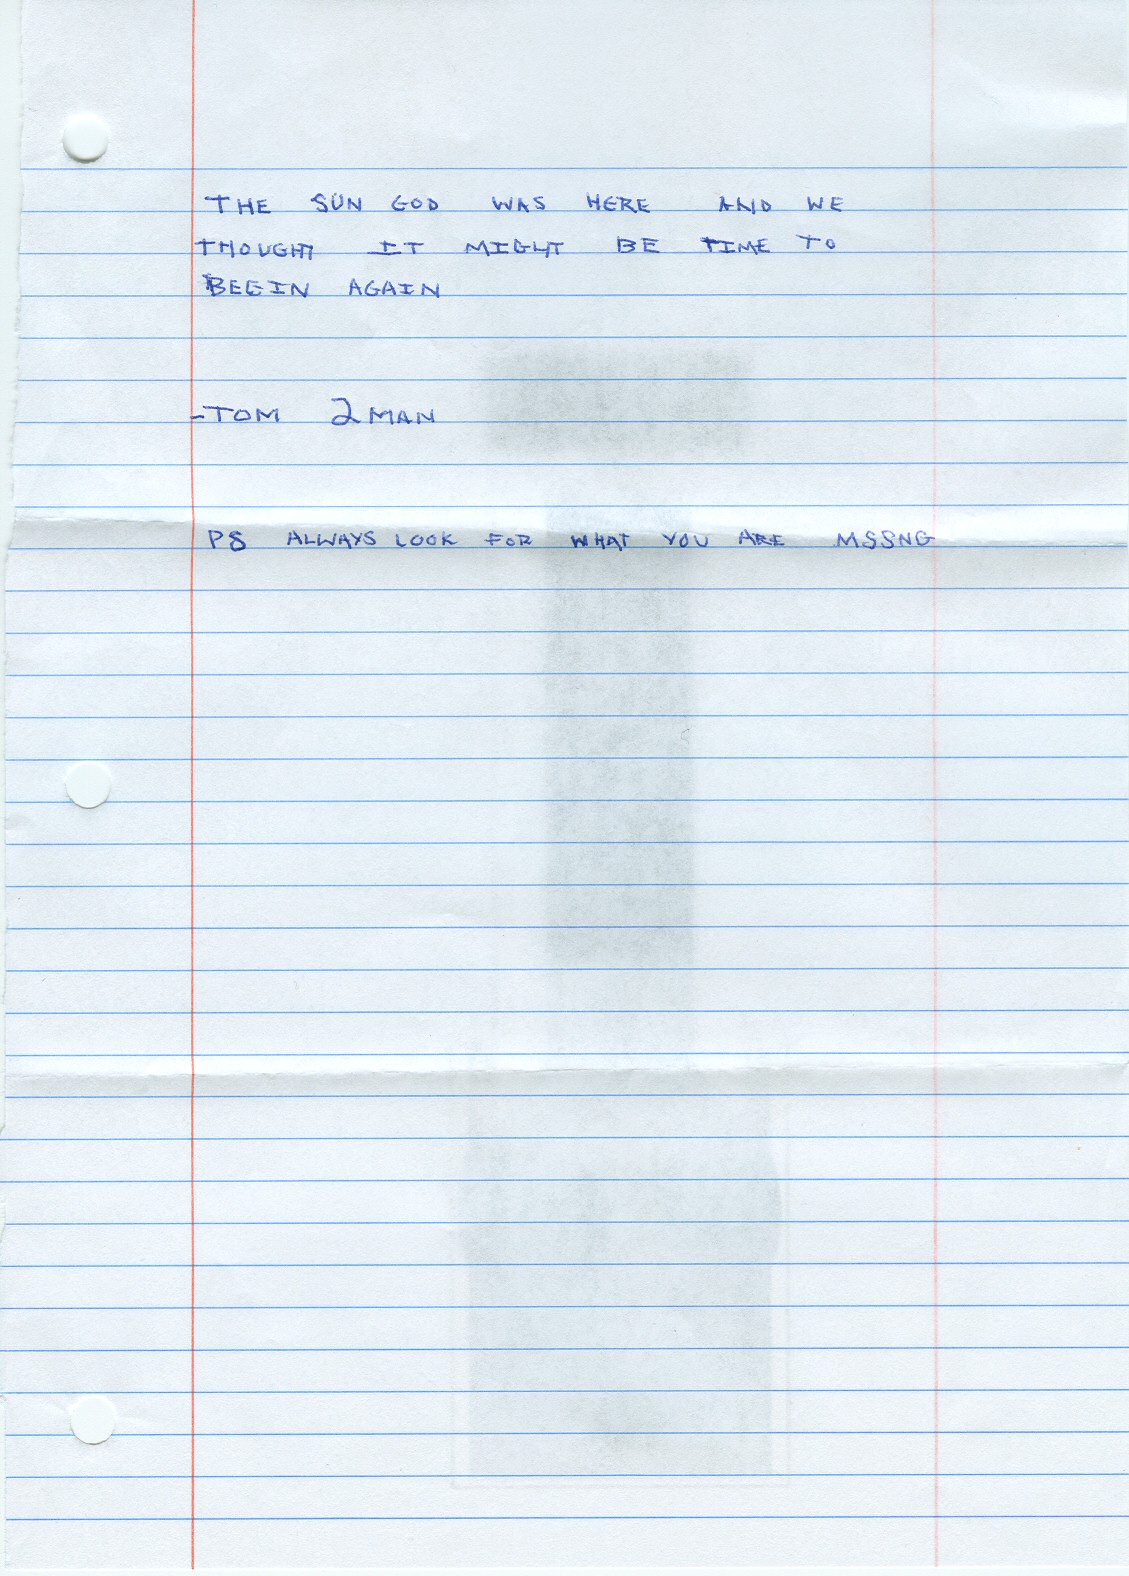 THE SUN GOD WAS HERE AND WE
THOUGHT IT MIGHT BE TIME TO
BEGIN AGAIN
-TOM 2MAN
PS ALWAYS LOOK FOR WHAT YOU ARE MSSNG